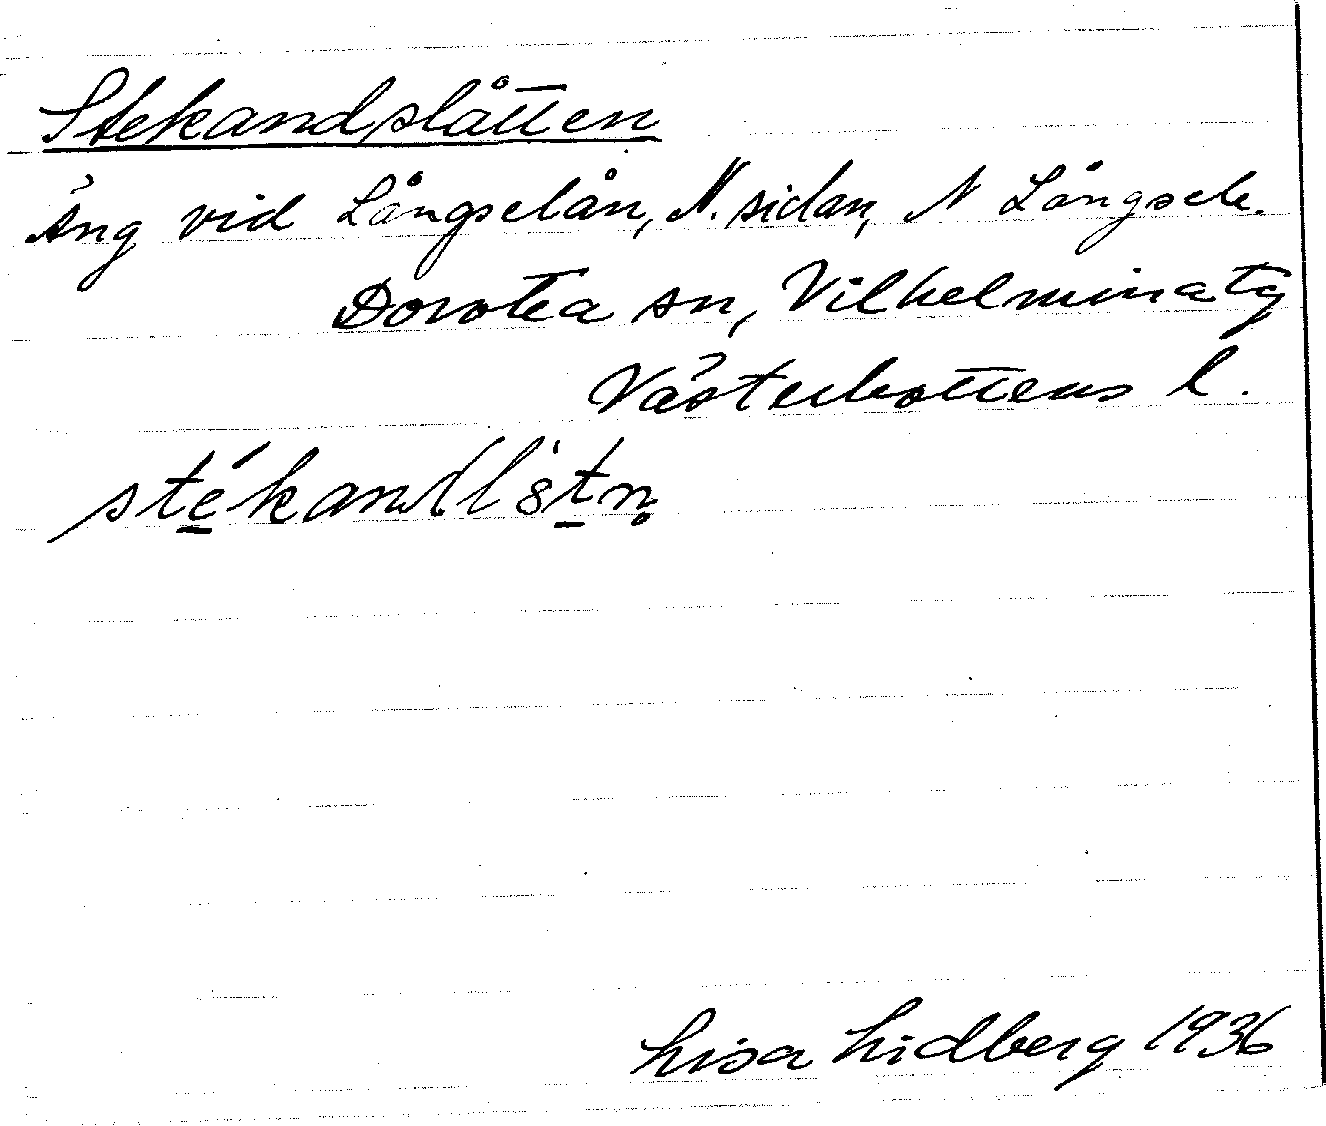 Stekandslåtten
Äng vid Långselån, N. sidan, N Långsele.
Dorotea sn, Vilhelmina tg
Västerbottens l.
Lisa Lidberg 1936